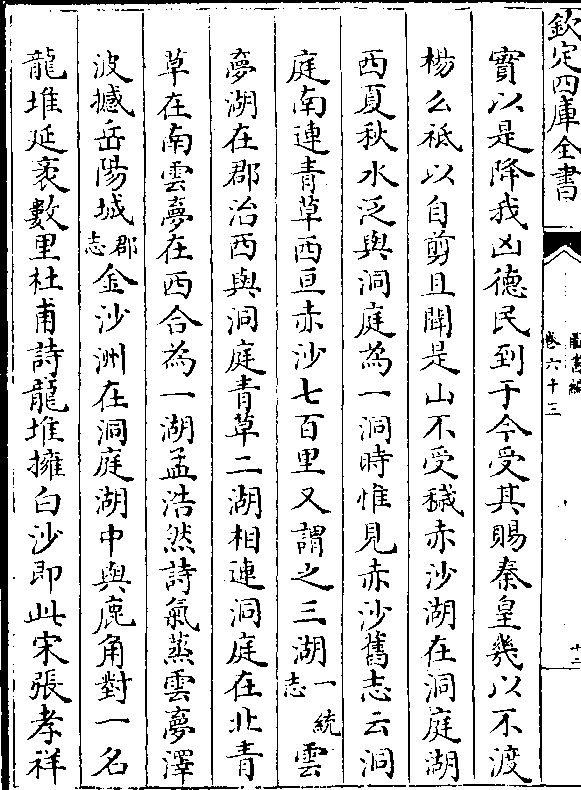 欽定四庫全書
卷六十三
十三
實以是降我凶德民到于今受其賜秦皇幾以不渡
楊么祗以自剪且聞是山不受穢赤沙湖在洞庭湖
西夏秋水泛與洞庭為一涸時惟見赤沙舊志云洞
庭南連青草西亘赤沙七百里又謂之三湖一統志雲
夢湖在郡治西與洞庭青草二湖相連洞庭在北青
草在南雲夢在西合為一湖孟浩然詩氣蒸雲夢澤
波撼岳陽城郡志金沙洲在洞庭湖中與鹿角對一名
龍堆延袤數里杜甫詩龍堆擁白沙即此宋張孝祥